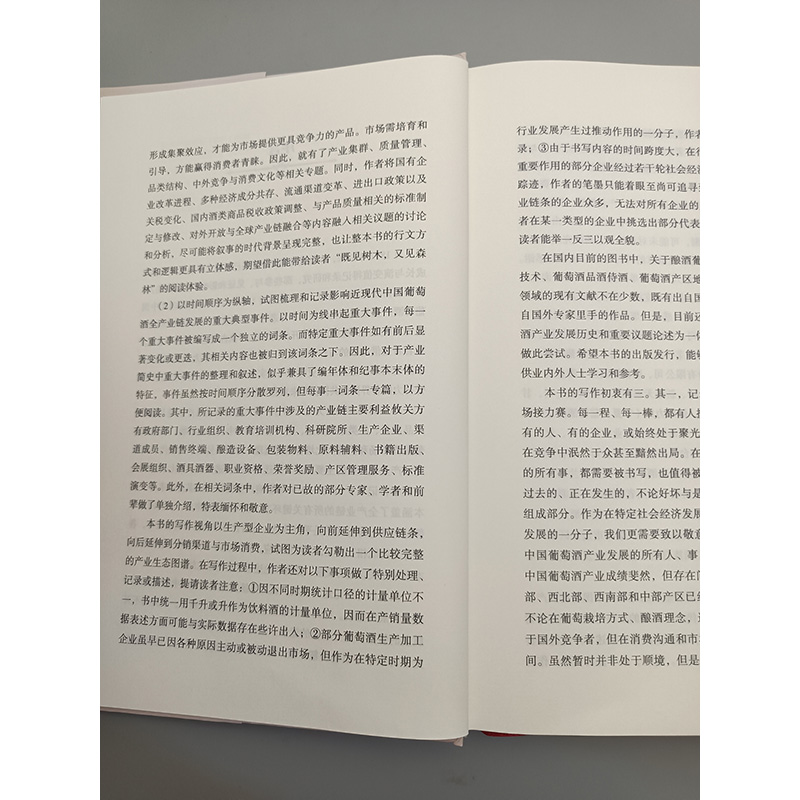 形成集聚效应，才能为市场提供更具竞争力的产品。市场需培育和
引导，方能赢得消费者青睐。因此，就有了产业集群、质量管理、
品类结构、中外竞争与消费文化等相关专题。同时，作者将国有企
业改革进程、多种经济成分共存、流通渠道变革、进出口政策以及
关税变化、国内酒类商品税收政策调整、与产品质量相关的标准制
定与修改、对外开放与全球产业链融合等内容融入相关议题的讨论
和分析，尽可能将叙事的时代背景呈现完整，也让整本书的行文方
式和逻辑更具有立体感，期望借此能带给读者“既见树木，又见森
林”的阅读体验。
（2）以时间顺序为纵轴，试图梳理和记录影响近现代中国葡萄
酒全产业链发展的重大典型事件。以时间为线串起重大事件，每一
个重大事件被编写成一个独立的词条。而特定重大事件如有前后显
著变化或更迭，其相关内容也被归到该词条之下。因此，对于产业
简史中重大事件的整理和叙述，似乎兼具了编年体和纪事本末体的
特征，事件虽然按时间顺序分散罗列，但每事一词条一专篇，以方
便阅读。其中，所记录的重大事件中涉及的产业链主要利益攸关方
有政府部门、行业组织、教育培训机构、科研院所、生产企业、渠
道成员、销售终端、酿造设备、包装物料、原料辅料、书籍出版、
会展组织、酒具酒器、职业资格、荣誉奖励、产区管理服务、标准
演变等。此外，在相关词条中，作者对已故的部分专家、学者和前
辈做了单独介绍，特表缅怀和敬意。
本书的写作视角以生产型企业为主角，向前延伸到供应链条，
向后延伸到分销渠道与市场消费，试图为读者勾勒出一个比较完整
的产业生态图谱。在写作过程中，作者还对以下事项做了特别处理、
记录或描述，提请读者注意：①因不同时期统计口径的计量单位不
一，书中统一用千升或升作为饮料酒的计量单位，因而在产销量数
据表述方面可能与实际数据存在些许出入；②部分葡萄酒生产加工
企业虽早已因各种原因主动或被动退出市场，但作为在特定时期为
行业发展产生过推动作用的一分子，作者
录；③由于书写内容的时间跨度大，在行
重要作用的部分企业经过若干轮社会经济
踪迹，作者的笔墨只能着眼至尚可追寻
业链条的企业众多，无法对所有企业的
者在某一类型的企业中挑选出部分代表
读者能举一反三以观全貌。
在国内目前的图书中，关于酿酒葡
技术、葡萄酒品酒侍酒、葡萄酒产区地
领域的现有文献不在少数，既有出自国
自国外专家里手的作品。但是，目前还
酒产业发展历史和重要议题论述为一体
做此尝试。希望本书的出版发行，能够
供业内外人士学习和参考。
本书的写作初衷有三。其一，记
场接力赛。每一程、每一棒，都有人
有的人、有的企业，或始终处于聚光
在竞争中泯然于众甚至黯然出局。在
的所有事，都需要被书写，也值得被
过去的、正在发生的，不论好坏与是
组成部分。作为在特定社会经济发展
发展的一分子，我们更需要致以敬意
中国葡萄酒产业发展的所有人、事
中国葡萄酒产业成绩斐然，但存在
部、西北部、西南部和中部产区已经
不论在葡萄栽培方式、酿酒理念，还
于国外竞争者，但在消费沟通和市
间。虽然暂时并非处于顺境，但是